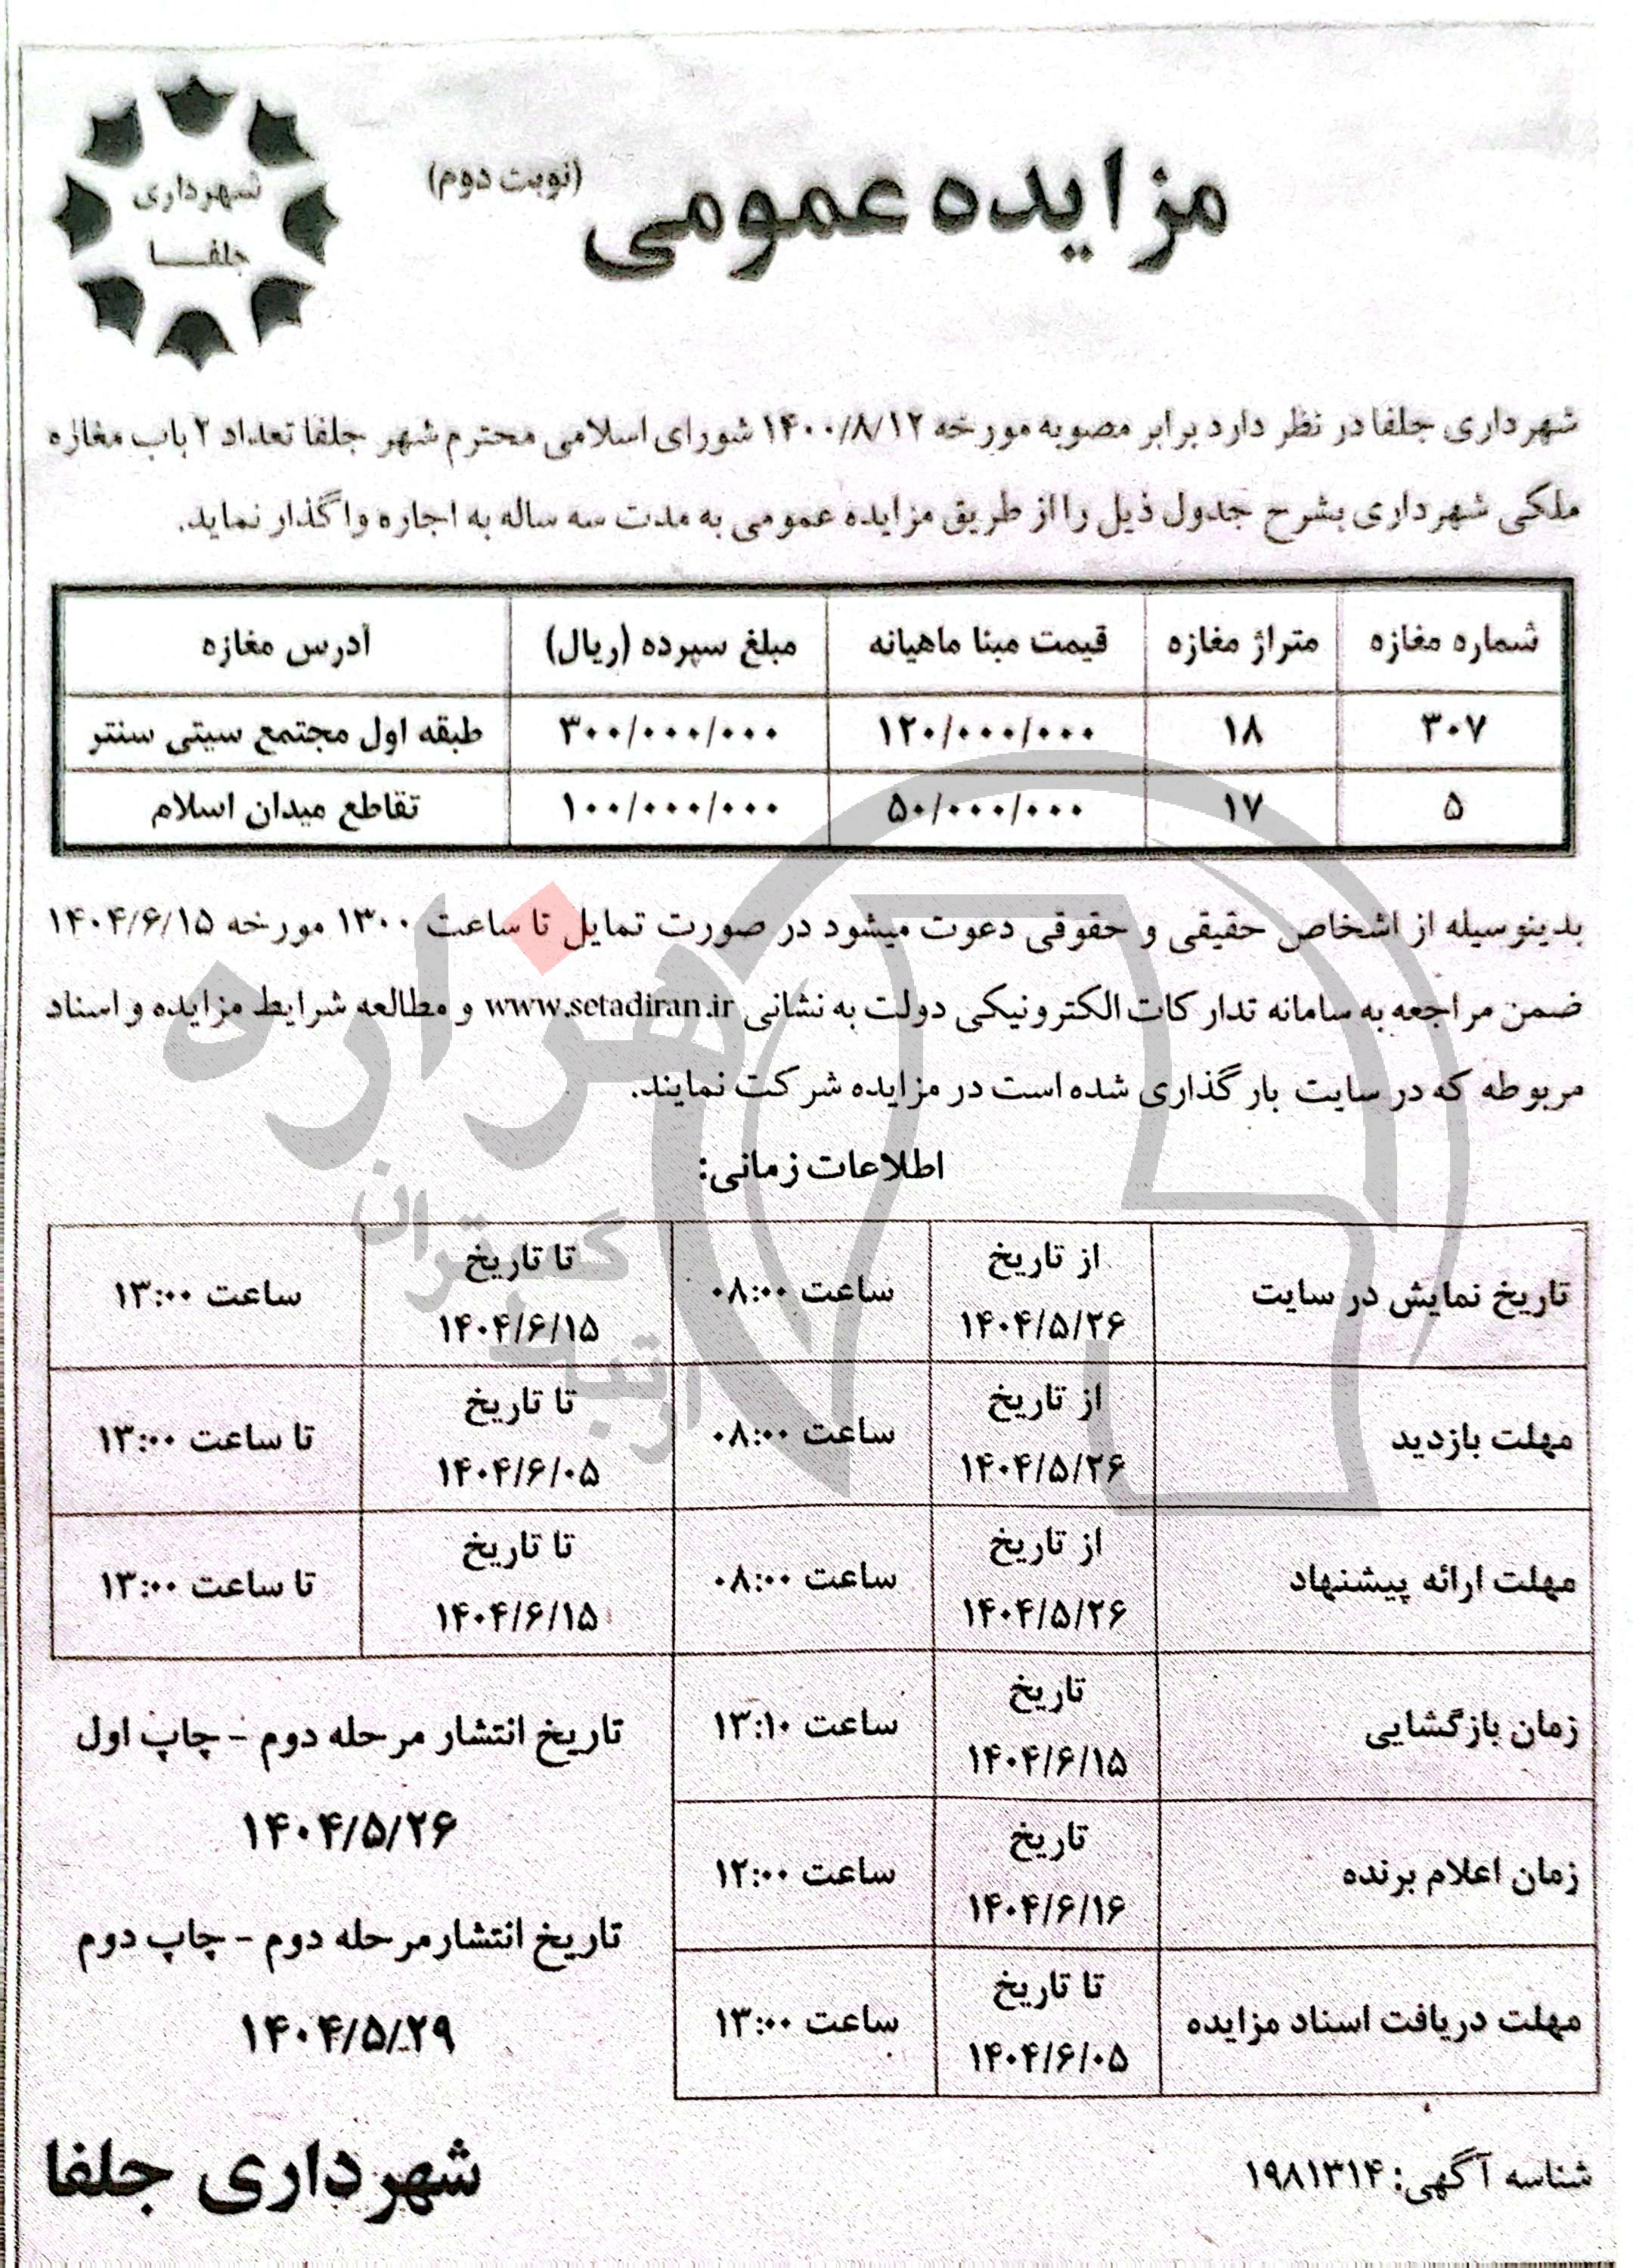 مزایده عمومی (نوبت دوم)
شهرداری
جلفا
شهرداری جلفا در نظر دارد برابر مصوبه مورخه ۱۴۰۰/۸/۱۲ شورای اسلامی محترم شهر جلفا تعداد ۲ باب مغازه
ملکی شهرداری بشرح جدول ذیل را از طریق مزایده عمومی به مدت سه ساله به اجاره واگذار نماید.
شماره مغازه متراژ مغازه قیمت مبنا ماهیانه مبلغ سپرده (ریال) آدرس مغازه
۳۰۷ ۱۸ ۱۲۰/۰۰۰/۰۰۰ ۳۰۰/۰۰۰/۰۰۰ طبقه اول مجتمع سیتی سنتر
۵ ۱۷ ۵۰/۰۰۰/۰۰۰ ۱۰۰/۰۰۰/۰۰۰ تقاطع میدان اسلام
بدینوسیله از اشخاص حقیقی و حقوقی دعوت میشود در صورت تمایل تا ساعت ۱۳۰۰ مورخه ۱۴۰۴/۶/۱۵
ضمن مراجعه به سامانه تدارکات الکترونیکی دولت به نشانی www.setadiran.ir و مطالعه شرایط مزایده و اسناد
مربوطه که در سایت بارگذاری شده است در مزایده شرکت نمایند.
اطلاعات زمانی:
تاریخ نمایش در سایت از تاریخ ۱۴۰۴/۵/۲۶ ساعت ۰۸:۰۰ تا تاریخ ۱۴۰۴/۶/۱۵ ساعت ۱۳:۰۰
مهلت بازدید از تاریخ ۱۴۰۴/۵/۲۶ ساعت ۰۸:۰۰ تا تاریخ ۱۴۰۴/۶/۰۵ تا ساعت ۱۳:۰۰
مهلت ارائه پیشنهاد از تاریخ ۱۴۰۴/۵/۲۶ ساعت ۰۸:۰۰ تا تاریخ ۱۴۰۴/۶/۱۵ تا ساعت ۱۳:۰۰
زمان بازگشایی تاریخ ۱۴۰۴/۶/۱۵ ساعت ۱۳:۱۰
زمان اعلام برنده تاریخ ۱۴۰۴/۶/۱۶ ساعت ۱۲:۰۰
مهلت دریافت اسناد مزایده تا تاریخ ۱۴۰۴/۶/۰۵ ساعت ۱۳:۰۰
تاریخ انتشار مرحله دوم - چاپ اول
۱۴۰۴/۵/۲۶
تاریخ انتشار مرحله دوم - چاپ دوم
۱۴۰۴/۵/۲۹
شناسه آگهی: ۱۹۸۱۳۱۴
شهرداری جلفا
هزاره
ارتباط گستران